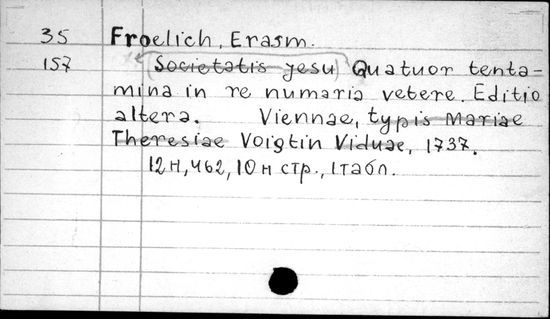 35 Froelich, Erasm.
157 (Societatis Jesu) Quatuor tenta-
mina in re numaria vetere. Editio
altera. Viennae, typis Mariae
Theresiae Voigtin Viduae, 1737.
12н, 462, 10н стр., 1табл.